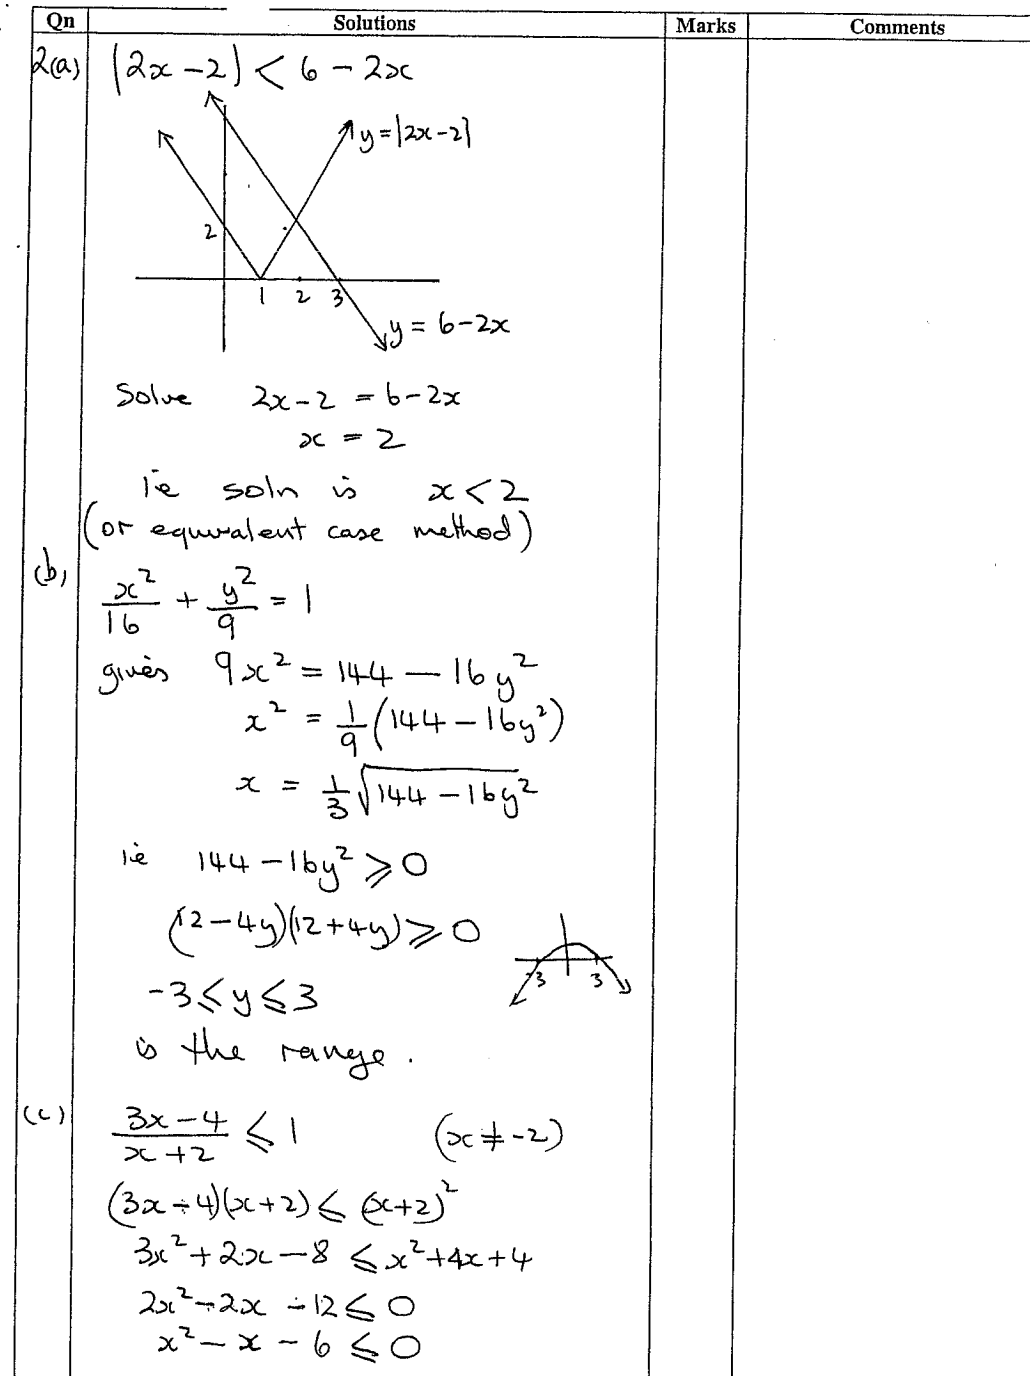 Qn Solutions Marks Comments
2(a) |2x-2| < 6-2x
y=|2x-2|
2
1 2 3
y = 6-2x
Solve 2x-2 = 6-2x
x = 2
ie soln is x<2
(or equivalent case method)
(b) x²/16 + y²/9 = 1
gives 9x² = 144 - 16y²
x² = 1/9 (144-16y²)
x = 1/3 √144-16y²
ie 144-16y² ⩾ 0
(12-4y)(12+4y) ⩾ 0
-3 3
-3 ⩽ y ⩽ 3
is the range.
(c) 3x-4/x+2 ⩽ 1 (x≠-2)
(3x-4)(x+2) ⩽ (x+2)²
3x²+2x-8 ⩽ x²+4x+4
2x²-2x-12 ⩽ 0
x²-x-6 ⩽ 0